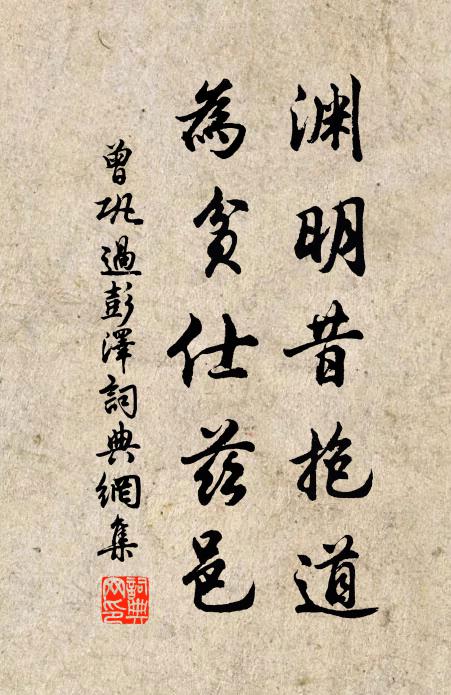 渊明昔抱道
為貧仕茲邑
曾巩過彭澤詞典網集
詞典
网印